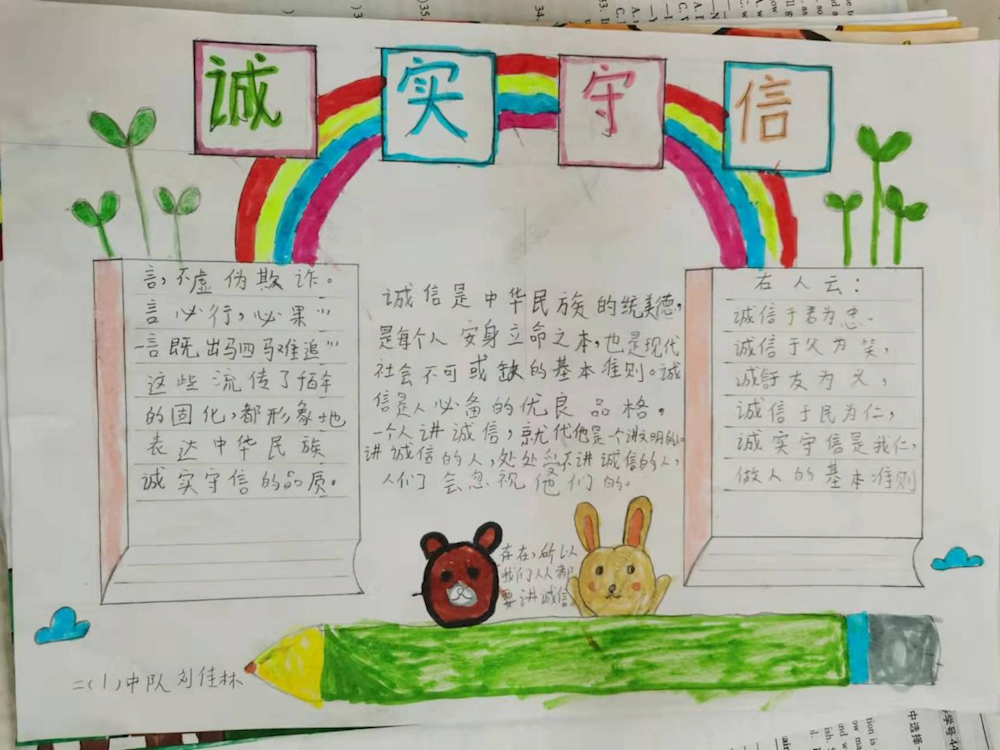 诚实守信
言,不虚伪欺诈。
言必行,必果"
一言既出驷马难追"
这些流传了千百年
的固化,都形象地
表达中华民族
诚实守信的品质。
诚信是中华民族的统美德,
是每个人安身立命之本,也是现代
社会不可或缺的基本准则。诚
信是人必备的优良品格,
一个人讲诚信,就代他是一个讲文明的人
讲诚信的人,处处受不讲诚信的人,
人们了会忽视他们的。
存在,所以
我们人人都
要讲诚信
右人云:
诚信于君为忠.
诚信于父为笑,
诚于友为义,
诚信于民为仁,
诚实守信是我仁,
做人的基本准则
二(1)中队 刘佳林